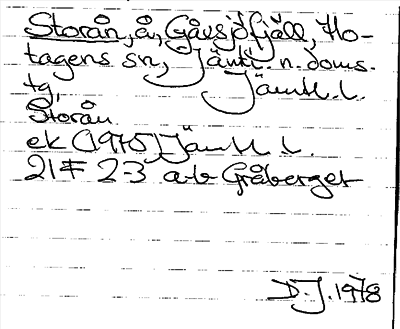 Storån, å, Gåsjöfjäll, Ho-
tagens sn, Jämtl. n. doms.
tg, Jämtl. l.
Storån
ek (1970) Jämtl. l.
21F 2-3 a-b Gråberget
D.J. 1978